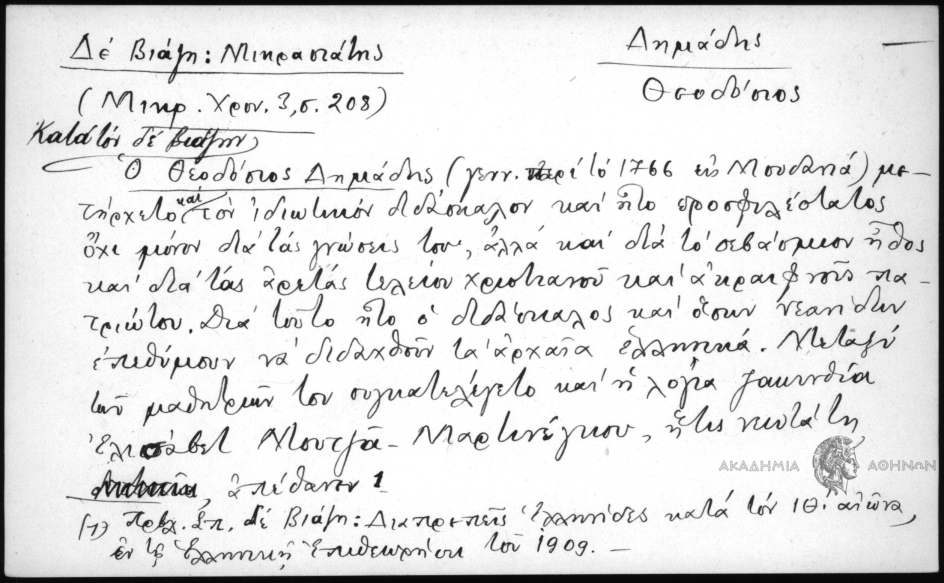 Δέ Βιάζη: Μικρασιάτης
Δημάδης
Θεοδόσιος
(Μικρ. Χρον. 3, σ. 208)
Κατά τόν δέ Βιάζην,
Ὁ Θεοδόσιος Δημάδης (γενν. περί τό 1766 εἰς Μουδανιά) με-
τήρχετο καί τόν ἰδιωτικόν διδάσκαλον καί ἦτο προσφιλέστατος
ὄχι μόνον διά τάς γνώσεις του, ἀλλά καί διά τό σεβάσμιον ἦθος
καί διά τάς ἀρετάς τελείου χριστιανοῦ καί ἀκραιφνοῦς πα-
τριώτου. Διά τοῦτο ἦτο ὁ διδάσκαλος καί ὅσων νεανίδων
ἐπεθύμουν νά διδαχθοῦν τά ἀρχαῖα ἑλληνικά. Μεταξύ
τῶν μαθητριῶν του συγκατελέγετο καί ἡ λογία Ζακυνθία
Ἐλισάβετ Μουτζᾶ-Μαρτινέγκου, ἥτις νεωτάτη
ἀπέθανεν 1
(1) Πρβλ. Σπ. δέ Βιάζη: Διαπρεπεῖς Ἑλληνίδες κατά τόν ΙΘ. αἰῶνα,
ἐν τῇ Ἑλληνικῇ Ἐπιθεωρήσει τοῦ 1909. —
ΑΚΑΔΗΜΙΑ ΑΘΗΝΩΝ